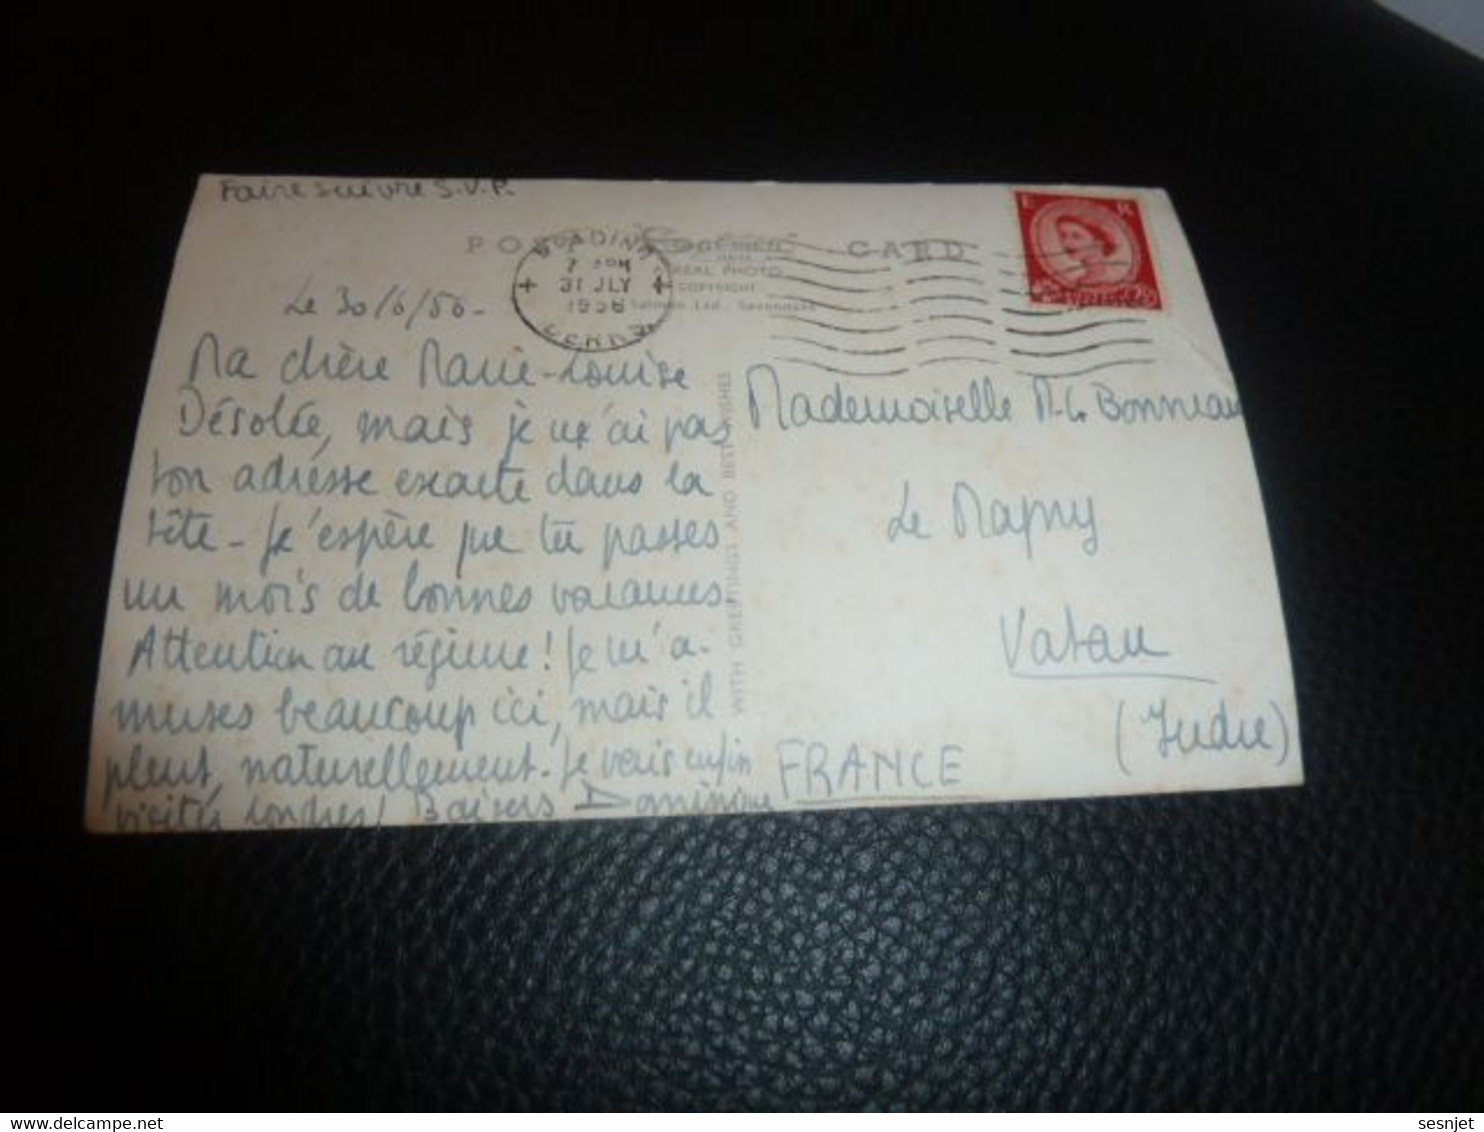 Faire suivre S.V.P.
POST CARD
READING
31 JLY
1956
BERKS
REAL PHOTO
COPYRIGHT
Salmon Ltd., Sevenoaks
E R
Le 30/6/56-
Ma chère Marie-Louise
Désolée, mais je n'ai pas
ton adresse exacte dans la
tête - Je t'espère que tu passes
un mois de bonnes vacances.
Attention au régime! Je m'a-
muses beaucoup ici, mais il
pleut, naturellement. Je vais enfin
visiter Londres! Baisers Dominique
WITH GREETINGS AND BEST WISHES
Mademoiselle M-L Bonneau
Le
Vatan
(Indre)
FRANCE
sesnjet